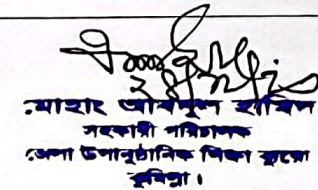 মোহাঃ আবদুল হালিম
সহকারী পরিচালক
জেলা উপানুষ্ঠানিক শিক্ষা ব্যুরো
কুমিল্লা।